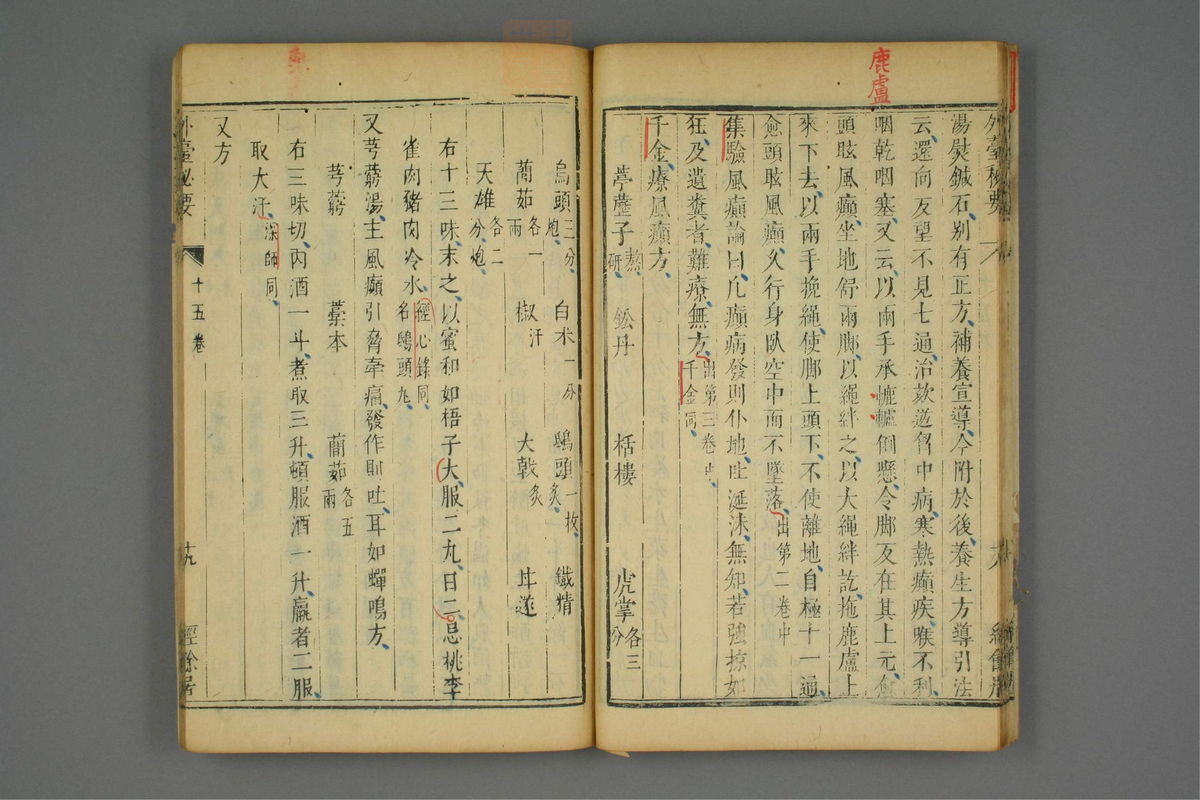 鹿盧
外臺秘要
湯熨鍼石別有正方補養宣導今附於後養生方導引法
云還向反望不見七通治欬逆胷中病寒熱癲疾喉不利
咽乾咽塞又云以兩手承轆轤倒懸令脚反在其上元愈
頭眩風癲坐地舒兩脚以繩絆之以大繩絆訖拖鹿盧上
來下去以兩手挽繩使脚上頭下不使離地自極十一通
愈頭眩風癲久行身臥空中而不墜落出第二卷中
集驗風癲論曰凡癲病發則仆地吐涎沫無知若強掠如
狂及遺糞者難療無方出第三卷中千金同
千金療風癲方
葶藶子熬研 鈆丹 栝樓 虎掌各三分
烏頭三分炮 白术一分 鴟頭一枚炙 鐵精
䕡茹各一兩 椒汗 大戟炙 甘遂
天雄各二分炮
右十三味末之以蜜和如梧子大服二丸日二忌桃李
雀肉豬肉冷水經心錄同名鴟頭丸
又芎藭湯主風癲引脅牽痛發作則吐耳如蟬鳴方
芎藭 藁本 䕡茹各五兩
右三味切內酒一斗煮取三升頓服酒一升羸者二服
取大汗深師同
又方
外臺秘要 十五卷 十九 經餘居